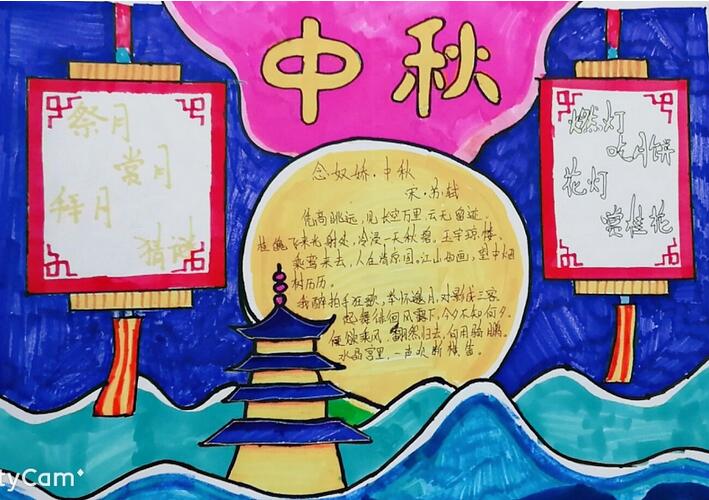 中秋
祭月
赏月
拜月
猜谜
念奴娇·中秋
宋·苏轼
凭高眺远,见长空万里,云无留迹。
桂魄飞来光射处,冷浸一天秋碧。玉宇琼楼,
乘鸾来去,人在清凉国。江山如画,望中烟
树历历。
我醉拍手狂歌,举杯邀月,对影成三客。
起舞徘徊风露下,今夕不知何夕。
便欲乘风,翻然归去,何用骑鹏。
水晶宫里,一声吹断横笛。
燃灯
吃月饼
花灯
赏桂花
tyCam